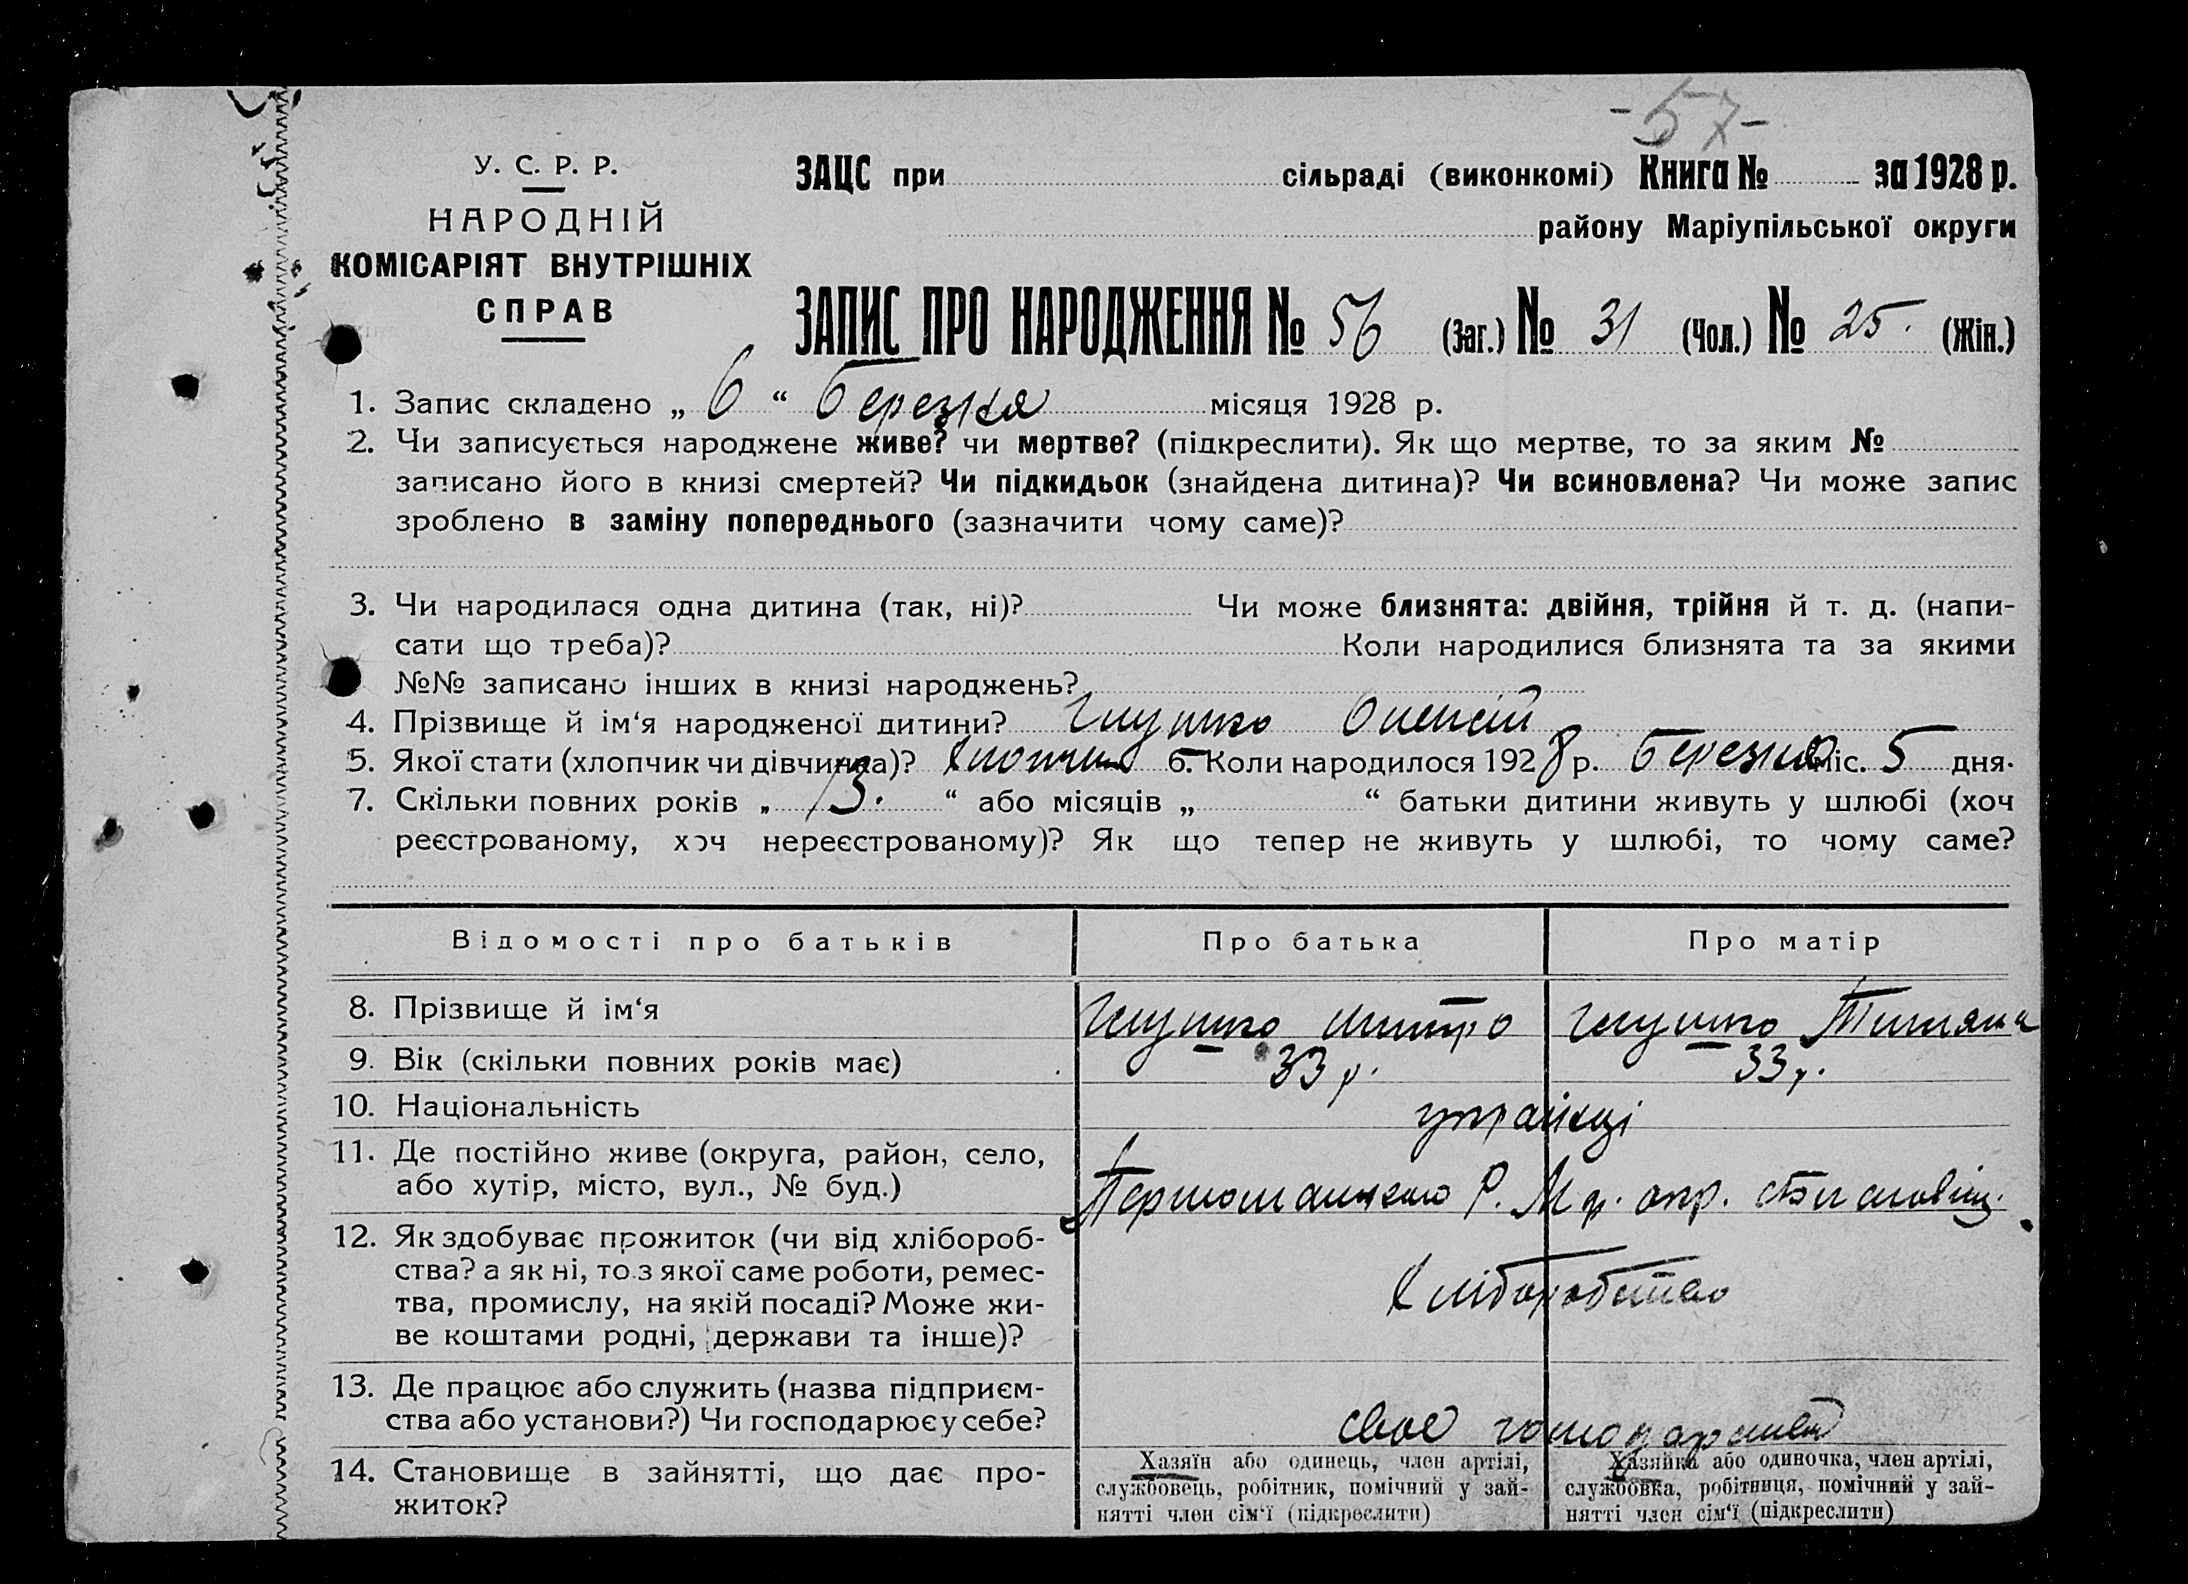 -57-
У. С. Р. Р.
НАРОДНІЙ
КОМІСАРІЯТ ВНУТРІШНІХ
СПРАВ
ЗАЦС при сільраді (виконкомі) Книга № за 1928 р.
району Маріупільської округи
ЗАПИС ПРО НАРОДЖЕННЯ № 56 (Заг.) № 31 (Чол.) № 25. (Жін.)
1. Запис складено „ 6 “ Березня місяця 1928 р.
2. Чи записується народжене живе? чи мертве? (підкреслити). Як що мертве, то за яким №
записано його в книзі смертей? Чи підкидьок (знайдена дитина)? Чи всиновлена? Чи може запис
зроблено в заміну попереднього (зазначити чому саме)?
3. Чи народилася одна дитина (так, ні)? Чи може близнята: двійня, трійня й т. д. (напи-
сати що треба)? Коли народилися близнята та за якими
№№ записано інших в книзі народжень?
4. Прізвище й ім‘я народженої дитини? Глушко Олексій
5. Якої стати (хлопчик чи дівчинка)? Хлопчик 6. Коли народилося 1928 р. Березня міс. 5 дня.
7. Скільки повних років „ 13. “ або місяців „ “ батьки дитини живуть у шлюбі (хоч
реєстрованому, хоч нереєстрованому)? Як що тепер не живуть у шлюбі, то чому саме?
Відомості про батьків Про батька Про матір
8. Прізвище й ім‘я Глушко Митро Глушко Титяна
9. Вік (скільки повних років має) 33 р. 33 р.
10. Національність українці
11. Де постійно живе (округа, район, село,
або хутір, місто, вул., № буд.) Р. окр.
12. Як здобуває прожиток (чи від хлібороб-
ства? а як ні, то з якої саме роботи, ремес-
тва, промислу, на якій посаді? Може жи-
ве коштами родні, держави та інше)? Хліборобство
13. Де працює або служить (назва підприєм-
ства або установи?) Чи господарює у себе? своє
14. Становище в зайнятті, що дає про-
житок?
Хазяїн або одинець, член артілі,
службовець, робітник, помічний у зай-
нятті член сім‘ї (підкреслити)
Хазяйка або одиночка, член артілі,
службовка, робітниця, помічний у зай-
нятті член сім‘ї (підкреслити)